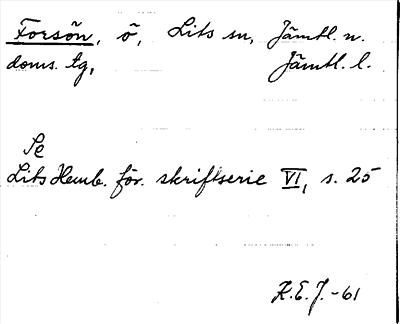 Forsön, ö, Lits sn, Jämtl. n.
doms. tg, Jämtl. l.
Se
Lits Hemb. för. skriftserie VI, s. 25
K.E.J. -61